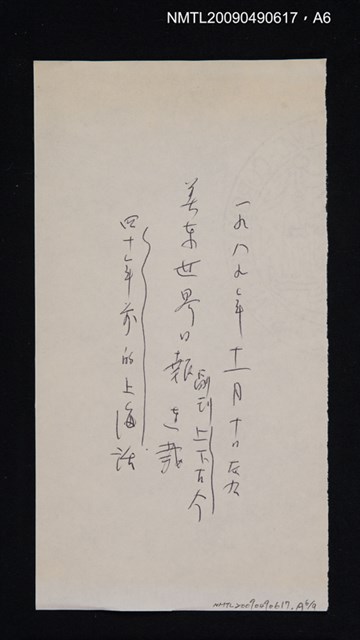 NMTL20090490617，A6
一九八九年十一月十日
美東世界日報
副刊上下古今
連載
四十年前的上海話
NMTL20090490617. A6/9